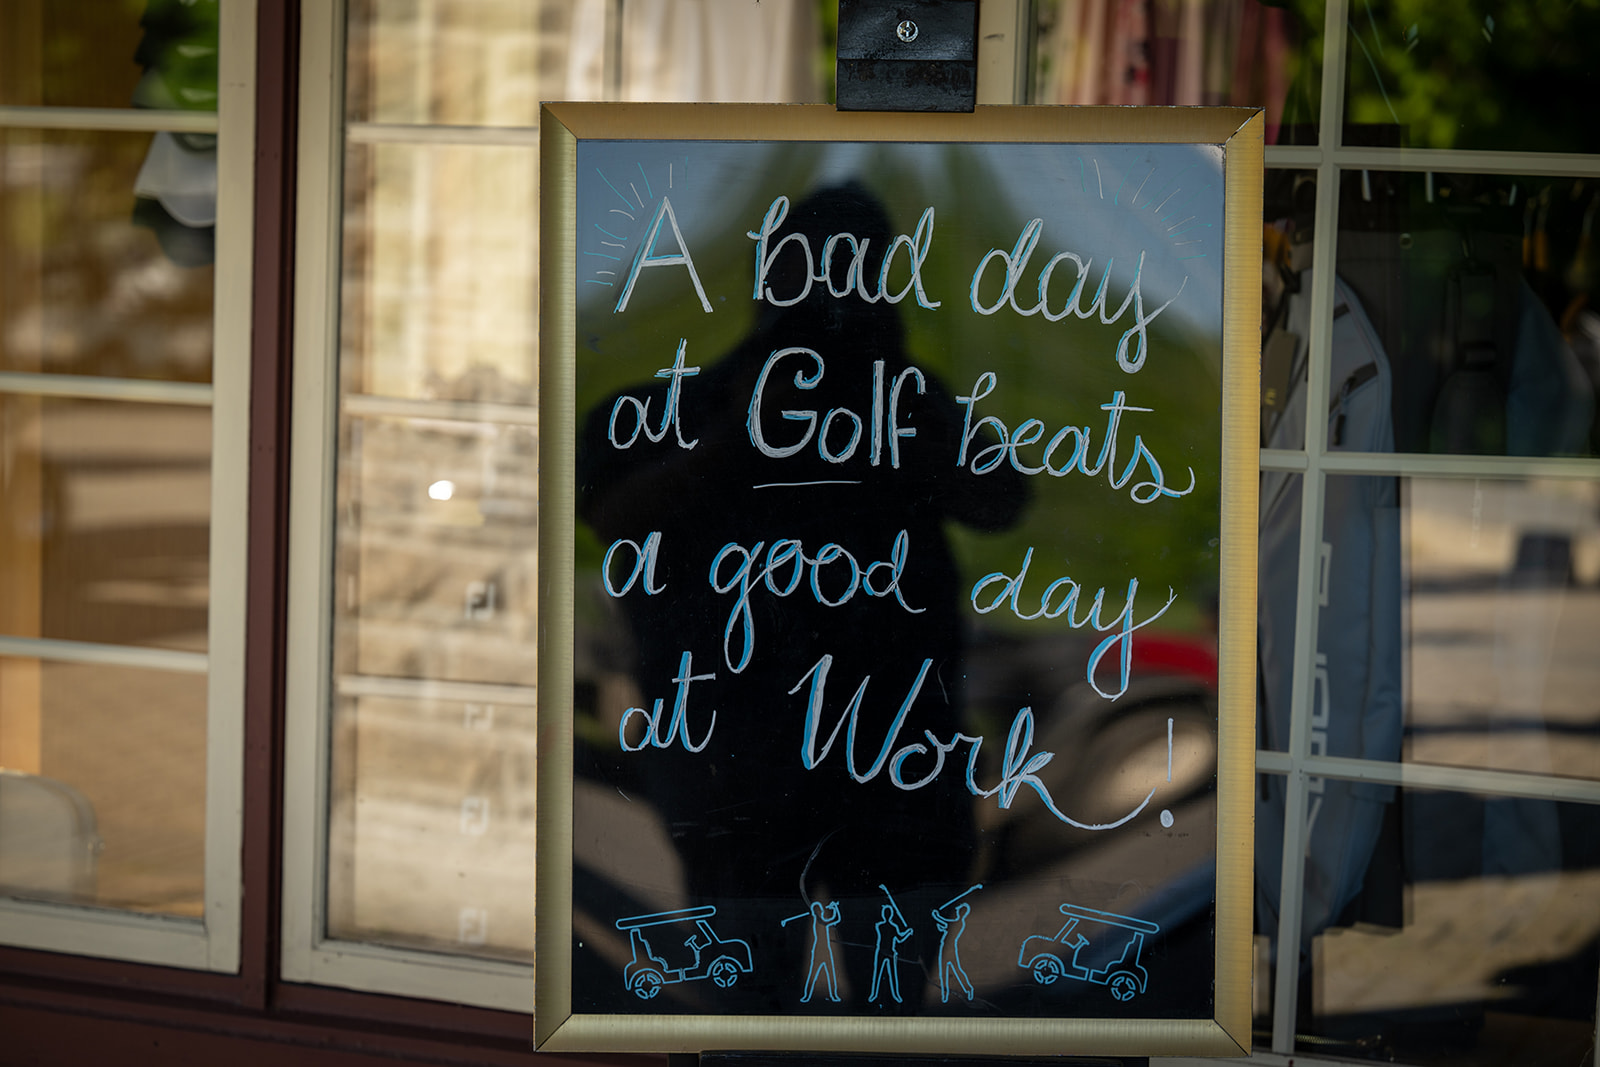 A bad day
at Golf beats
a good day
at Work!